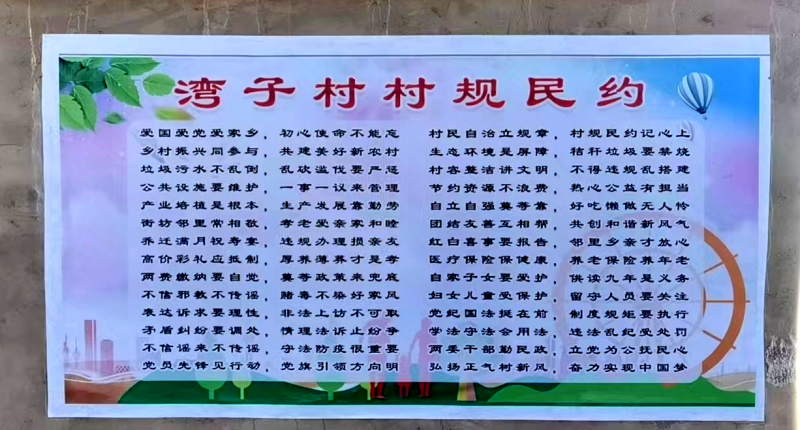 湾子村村规民约
爱国爱党爱家乡，初心使命不能忘
乡村振兴同参与，共建美好新农村
垃圾污水不乱倒，乱砍滥伐要严惩
公共设施要维护，一事一议来管理
产业培植是根本，生产发展靠勤劳
街坊邻里常相敬，孝老爱亲家和睦
乔迁满月祝寿宴，违规办理损亲友
高价彩礼应抵制，厚养薄葬才是孝
两费缴纳要自觉，莫等政策来兜底
不信邪教不传谣，赌毒不染好家风
表达诉求要理性，非法上访不可取
矛盾纠纷要调处，情理法诉止纷争
不信谣来不传谣，守法防疫很重要
党员先锋见行动，党旗引领方向明
村民自治立规章，村规民约记心上
生态环境是屏障，秸秆垃圾要禁烧
村容整洁讲文明，不得违规乱搭建
节约资源不浪费，热心公益有担当
自立自强莫等靠，好吃懒做无人怜
团结友善互相帮，共创和谐新风气
红白喜事要报告，邻里乡亲才放心
医疗保险保健康，养老保险养年老
自家子女要爱护，供读九年是义务
妇女儿童受保护，留守人员要关注
党纪国法挺在前，制度规矩要执行
学法守法会用法，违法乱纪受处罚
两委干部勤民政，立党为公抚民心
弘扬正气村新风，奋力实现中国梦